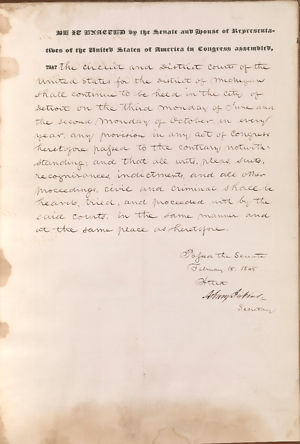 BE IT ENACTED by the Senate and House of Representa-
tives of the United States of America in Congress assembled,
THAT the Circuit and District Courts of the
United States for the District of Michigan
shall continue to be held in the city of
Detroit on the third Monday of June and
the second Monday of October in every
year, any provision in any act of Congress
heretofore passed to the contrary notwith-
standing, and that all writs, pleas, suits,
recognizances, indictments, and all other
proceedings, civil and criminal shall be
heard, tried, and proceeded with by the
said courts, in the same manner and
at the same place as heretofore.
Passed the Senate
February 18, 
Attest
Secretary